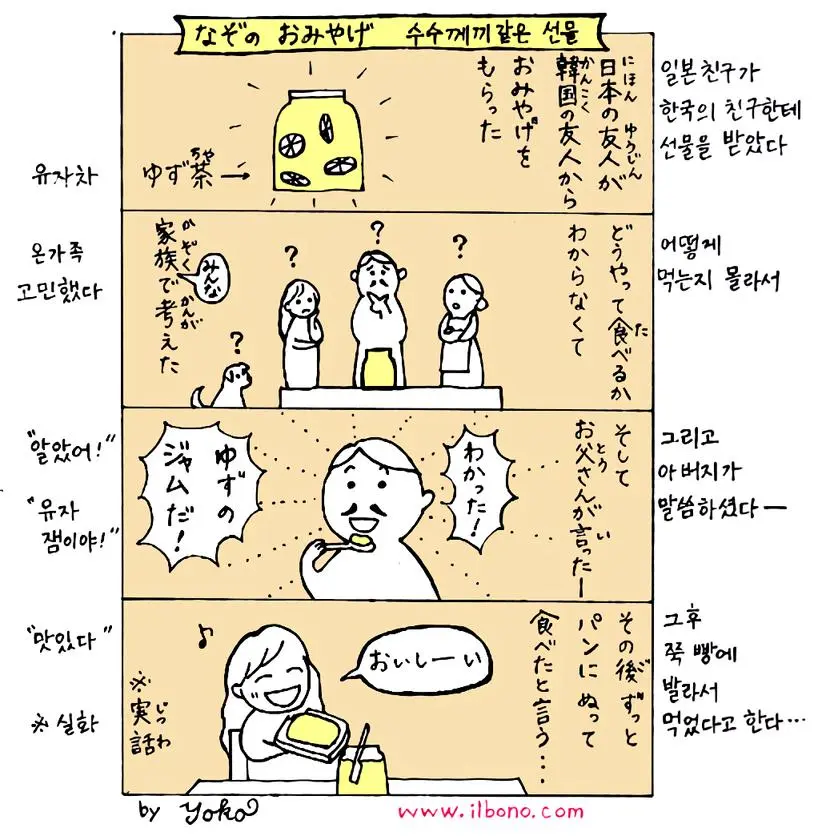 なぞの おみやげ 수수께끼같은 선물
日本の友人が
にほん ゆうじん
韓国の友人から
かんこく
おみやげを
もらった
ゆず茶→
ちゃ
일본친구가
한국의 친구한테
선물을 받았다
유자차
どうやって食べるか
た
わからなくて
みんな
家族で考えた
かぞく かんが
?
?
?
?
어떻게
먹는지 몰라서
온가족
고민했다
そして
お父さんが言ったー
とう い
わかった!
ゆずの
ジャムだ!
그리고
아버지가
말씀하셨다ー
"알았어!"
"유자
잼이야!"
その後ずっと
ご
パンにぬって
食べたと言う…
おいしーい
♪
※実話
じつわ
그후
쭉 빵에
발라서
먹었다고 한다…
"맛있다"
※실화
by Yoko
www.ilbono.com